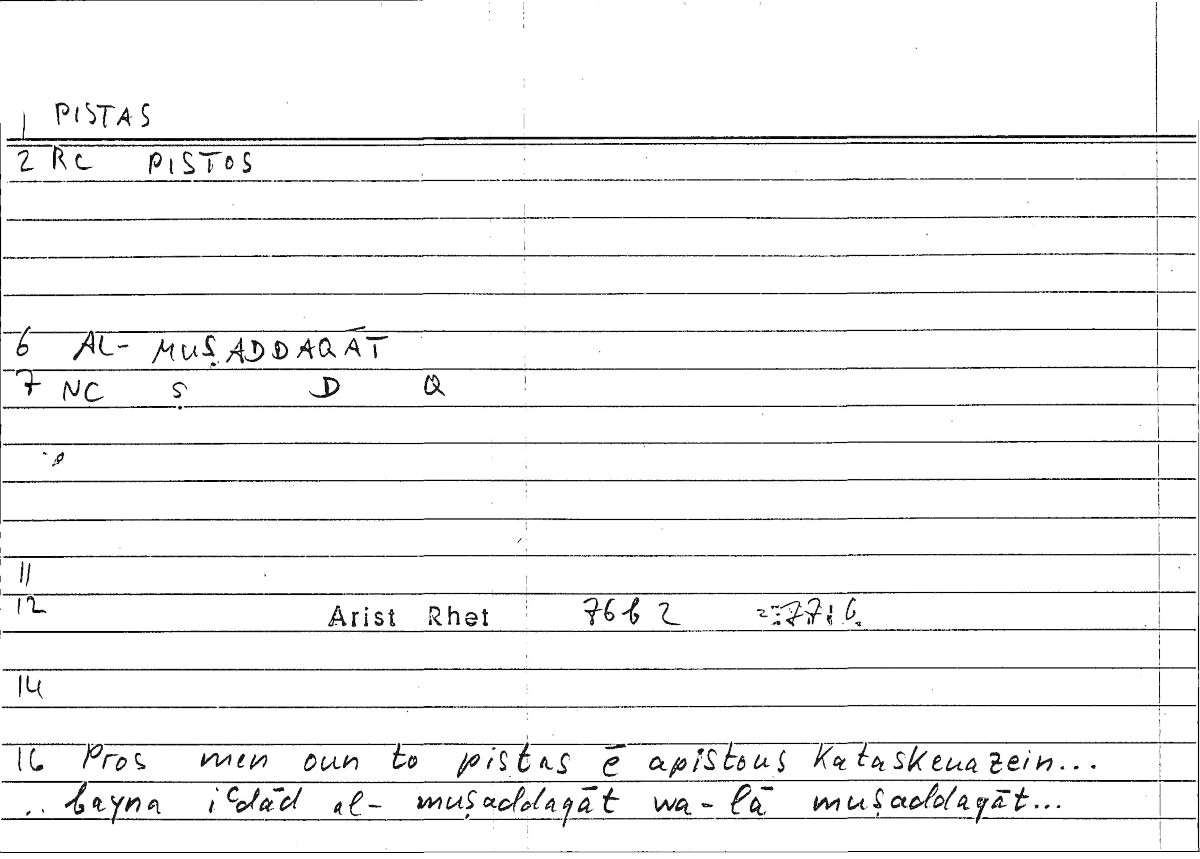 1 PISTAS
2 RC PISTOS
6 AL- MUṢADDAQĀT
7 NC Ṣ D Q
11
12 Arist Rhet 76b2
14
16 Pros men oun to pistas ē apistous kataskeuazein...
.. bayna iᶜdād al- muṣaddaqāt wa-lā muṣaddaqāt...